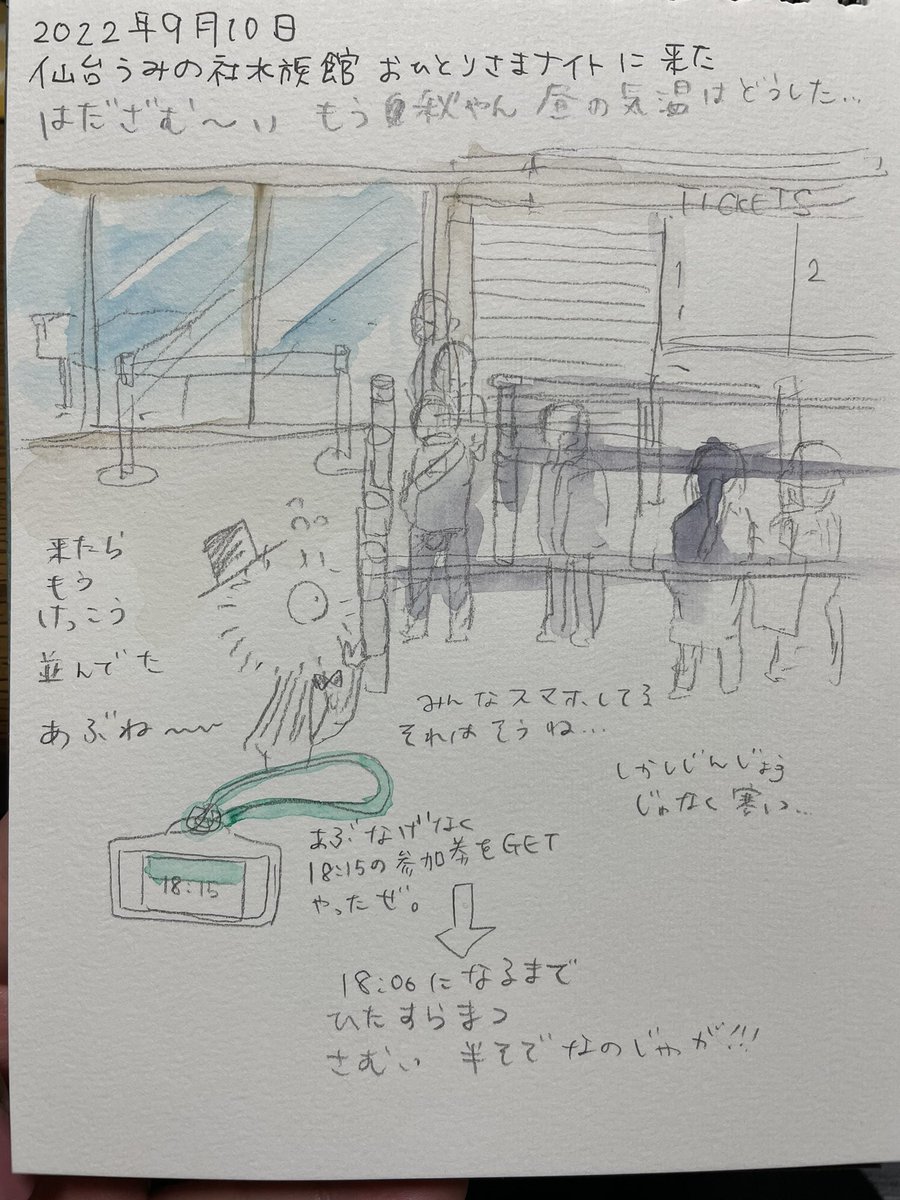 2022年9月10日
仙台うみの杜水族館 おひとりさまナイトに来た
はだざむ〜い もう秋やん 昼の気温はどうした…
TICKETS
1
2
来たら
もう
けっこう
並んでた
あぶね〜〜
みんなスマホしてる
それはそうね…
しかしじんじょう
じゃなく寒い…
18:15
あぶなげなく
18:15の参加券をGET
やったぜ。
18:06になるまで
ひたすらまつ
さむい 半そでなのじゃが!!!